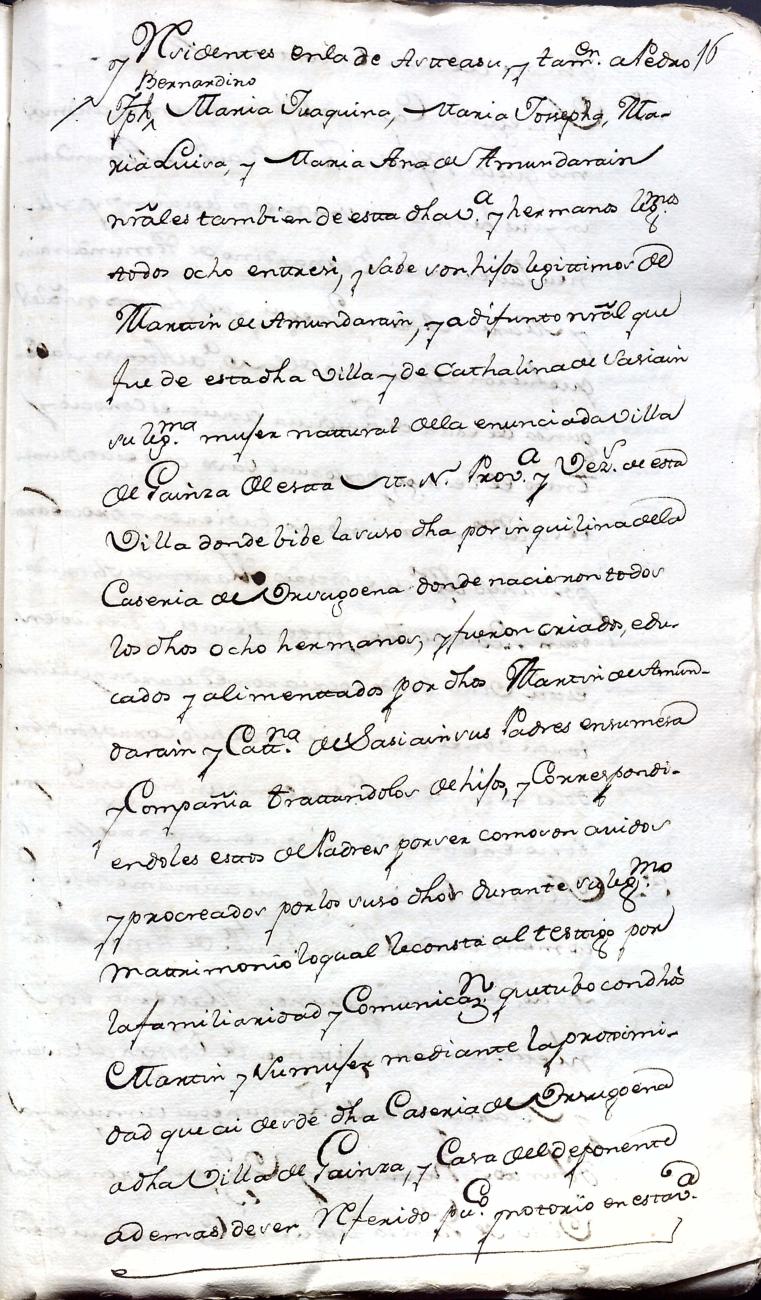 y Residentes enla de Astteasu, y tamvn. a Pedro 16
Bernardino
Jph, Maria Juaquina, Maria Jossepha, Ma-
ria Luisa, y Maria Ana de Amundarain
nrãles tambien de estta dha va. y hermanos legmos
todos ocho enttresi, y sabe son hijos legittimos de
Marttin de Amundarain, ya difunto nrãl que
fue de esta dha Villa y de Cathalina de Sasiain
su legma. mujer nattural della enunciada Villa
de Gainza de estta M. N. Prova. y Vez. de esta
Villa donde bibe la suso dha por inquilina dela
Caseria de Orsugoena donde nacieron todos
los dhos ocho hermanos, y fueron criados, edu-
cados y alimenttados por dhos Martin de Amun-
darain y Cattna. de Sasiain sus Padres en su mesa
y Compañia trattandolos de hijos, y Correspondi-
endoles estos de Padres por ser como son avidos
y procreados por los suso dhos durante su legmo
mattrimonio lo qual le consta al testtigo por
la familiaridad y Comunicazn. que tubo con dhos
Martin y su mujer mediante la proximi-
dad que ai desde dha Caseria de Orsugoena
a dha Villa de Gainza, y Casa del deponente
ademas de ser Referido puco. y notorio en esta va.